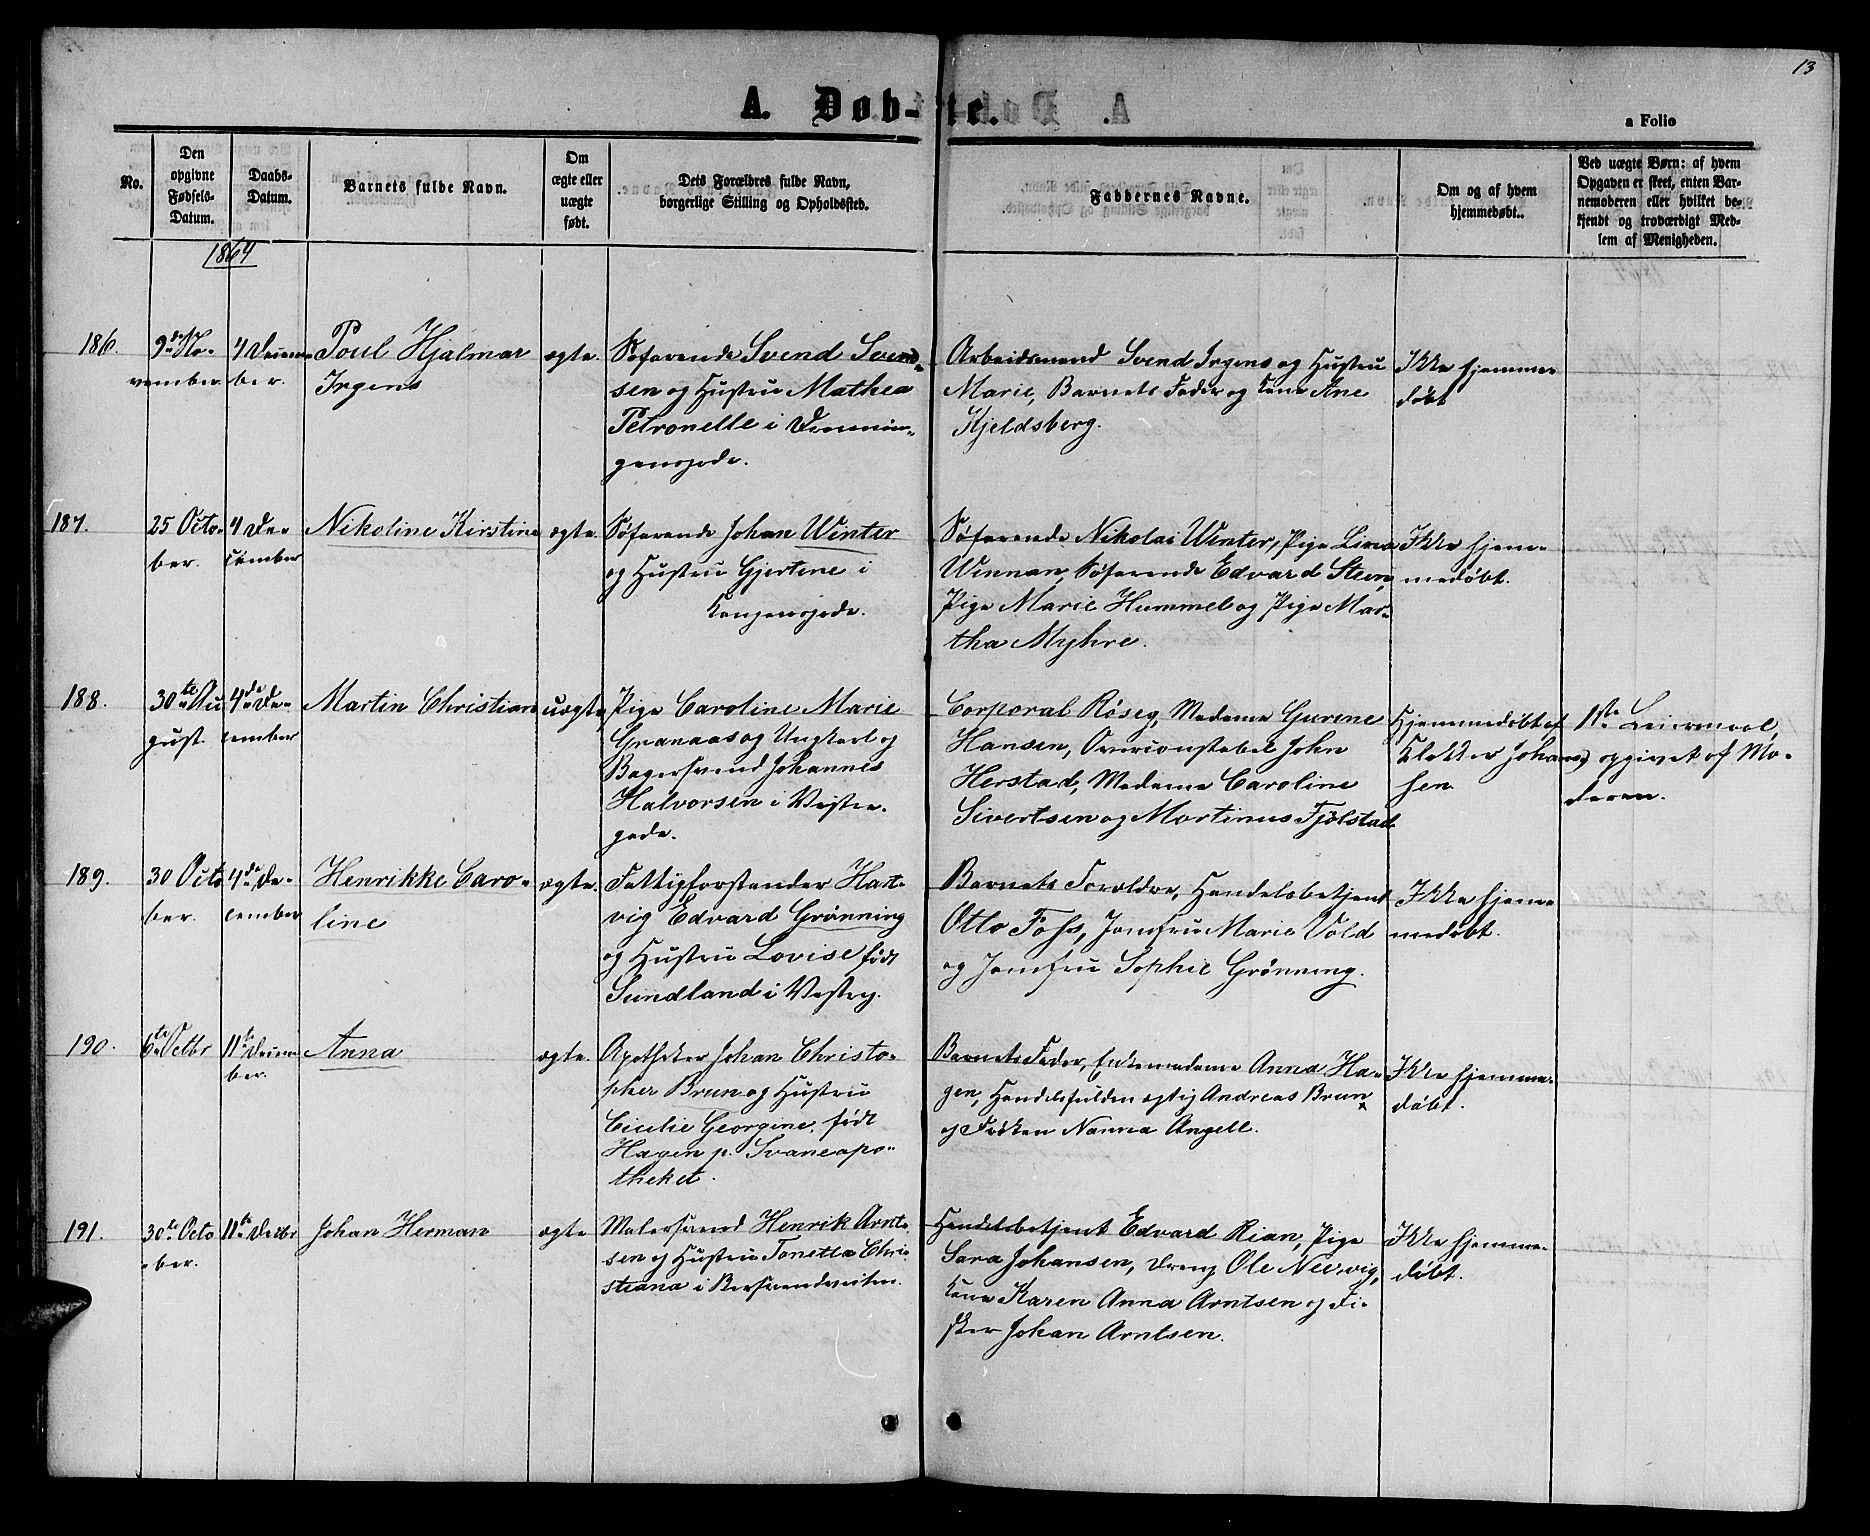 13
A. Døb-te.
a Folio
No.
Den opgivne Fødsels-Datum.
Daabs-Datum.
Barnets fulde Navn.
Om ægte eller uægte født.
Dets Forældres fulde Navn, borgerlige Stilling og Opholdssted.
Faddernes Navne.
Om og af hvem hjemmedøbt..
Ved uægte Børn: af hvem Opgaven er skeet, enten Barnemoderen eller hvilket bekjendt og troværdigt Medlem af Menigheden.
1864
186.
9de No-
vember
4 Decem-
ber.
Poul Hjalmar
Irgens
ægte.
Søfarende Svend Svend-
sen og Hustru Mathea
Petronelle i Dronnin-
gensgade.
Arbeidsmand Svend Irgens og Hustru
Marie, Barnets Fader og Kone Ane
Kjeldsberg.
Ikke hjemme-
døbt
187.
25 Octo-
ber.
4 De-
cember
Nikoline Kirstine
ægte.
Søfarende Johan Winter
og Hustru Gjertine i
Kongensgade.
Søfarende Nikolai Winter, Pige Lina
Winnan, Søfarende Edvard Steen,
Pige Marie Hummel og Pige Mar-
tha Myhre.
Ikke hjem-
medøbt.
188.
30te Au
gust.
4de De-
cember
Martin Christian
uægte,
Pige Caroline Marie
Granaas og Ungkarl og
Bagersvend Johannes
Halvorsen i Vestre-
gade.
Corporal Røseg, Madame Gurene
Hansen, Overconstabel John
Herstad, Madame Caroline
Sivertsen og Martinus Fjølstad
Hjemmedøbt af
Klokker Johan-
sen
1ste Leiermaal,
opgivet af Mo-
deren.
189.
30 Octo
ber.
4de De-
cember
Henrikke Caro-
line
ægte.
Fattigforstander Hart-
vig Edvard Grønning
og Hustru Lovise født
Sundland i Vestrg.
Barnets Forældre, Handelsbetjent
Otto Foss, Jomfru Marie Vold
og Jomfru Sophie Grønning.
Ikke hjem-
medøbt.
190.
6te Octbr
11te Decem
ber.
Anna
ægte.
Apotheker Johan Christo-
pher Brun og Hustru
Cicilie Georgine, født
Hagen p. Svaneapo-
theket.
Barnets Fader, Enkemadame Anna Ha-
gen, Handelsfuldmægtig Andreas Brun
og Frøken Nanna Angell.
Ikke hjemme-
døbt.
191.
30te Octo
ber.
11te Decbr
Johan Herman
ægte
Malersvend Henrik Arnt-
sen og Hustru Tonetta Chri-
stiana i Bersvendveiten.
Handelsbetjent Edvard Rian, Pige
Sara Johansen, Dreng Ole Neervig,
Kone Karen Anna Arntsen og Fi-
sker Johan Arntsen.
Ikke hjemme-
døbt.